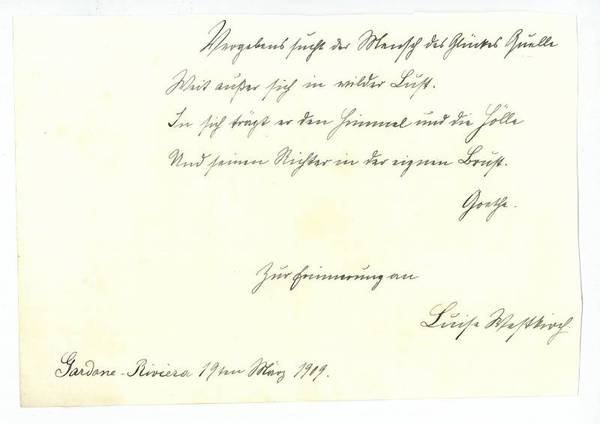 Vergebens sucht der Mensch des Glückes Quelle
Weit außer sich in wilder Lust.
In sich trägt er den Himmel und die Hölle
Und seinen Richter in der eignen Brust.
Goethe.
Zur Erinnerung an
Luise Westkirch.
Gardone-Riviera 19ten März 1909.